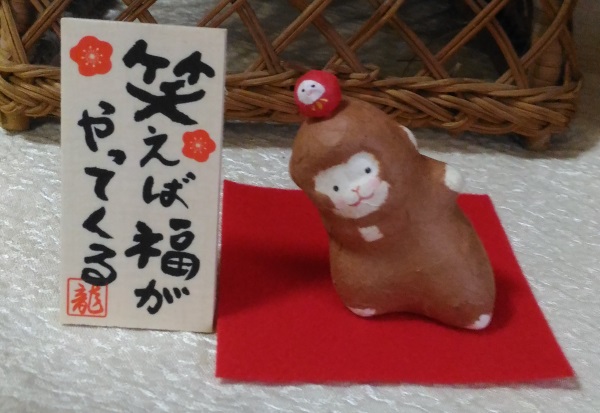 笑えば福が
やってくる
龍